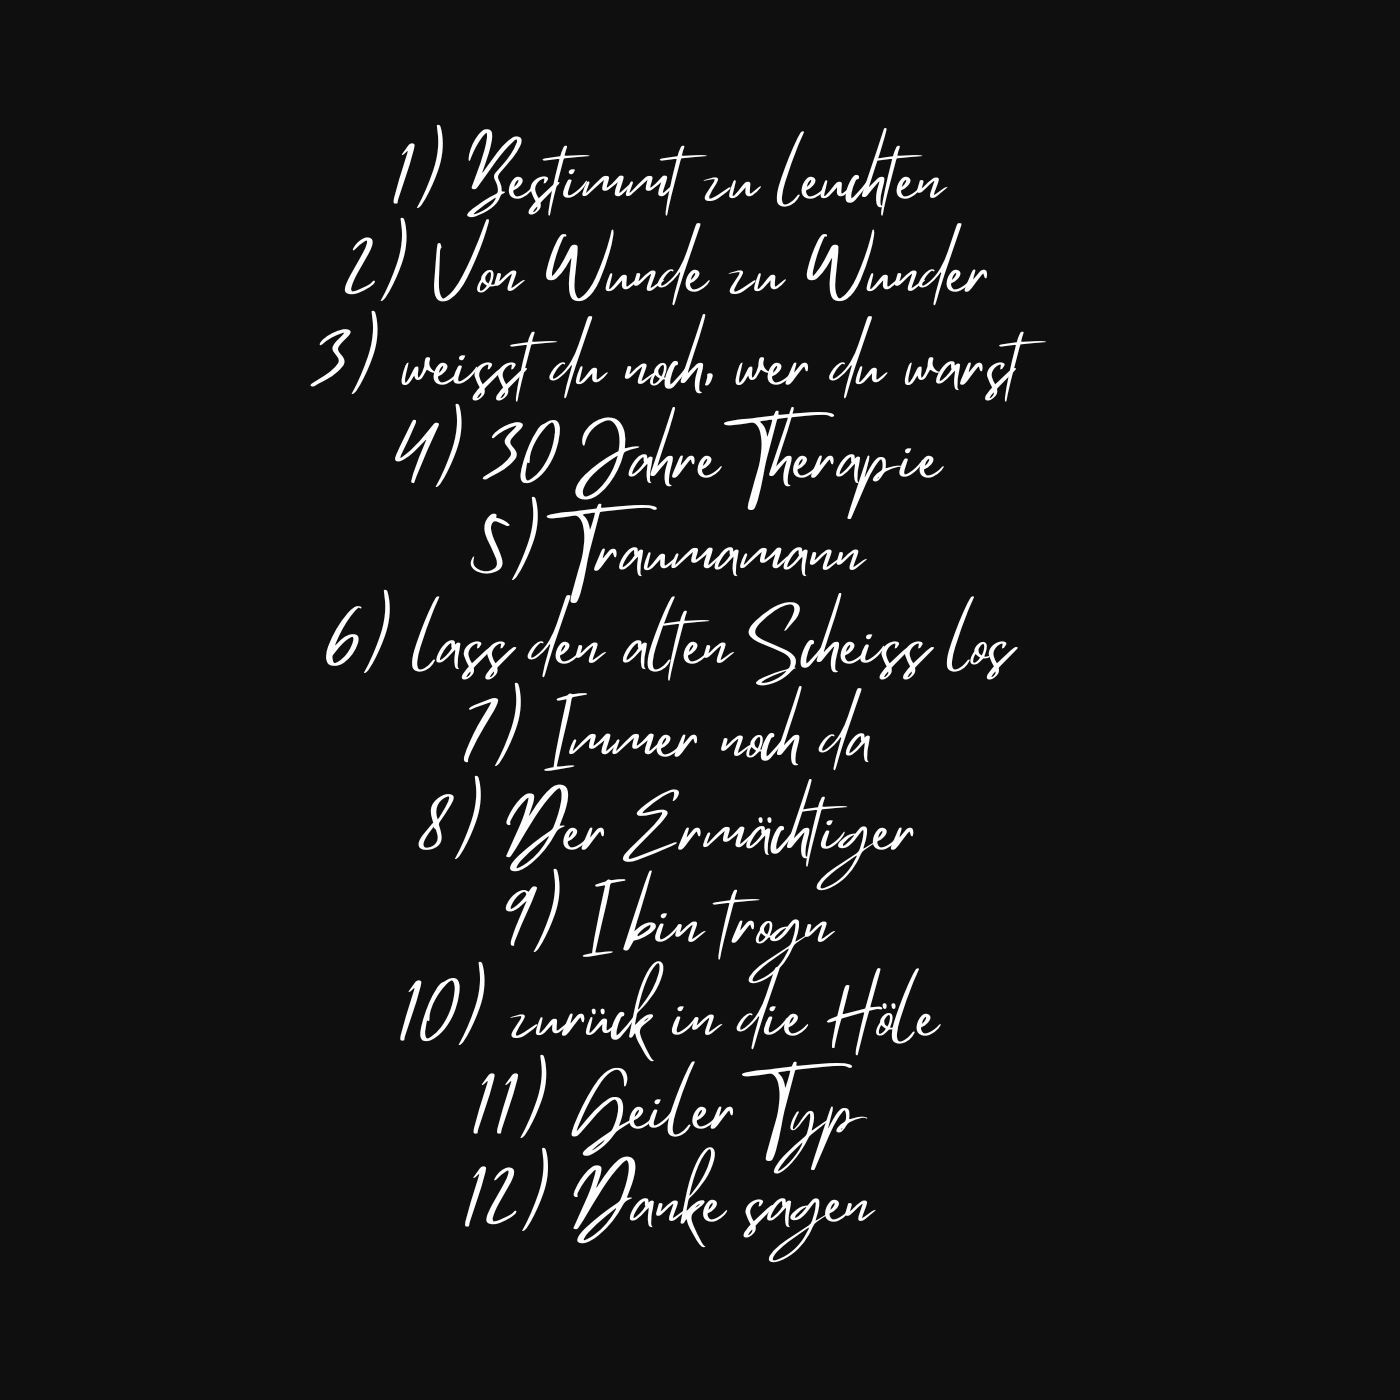 1) Bestimmt zu leuchten
2) Von Wunde zu Wunder
3) weisst du noch, wer du warst
4) 30 Jahre Therapie
5) Traumamann
6) lass den alten Scheiss los
7) Immer noch da
8) Der Ermächtiger
9) I bin trogn
10) zurück in die Höle
11) Geiler Typ
12) Danke sagen